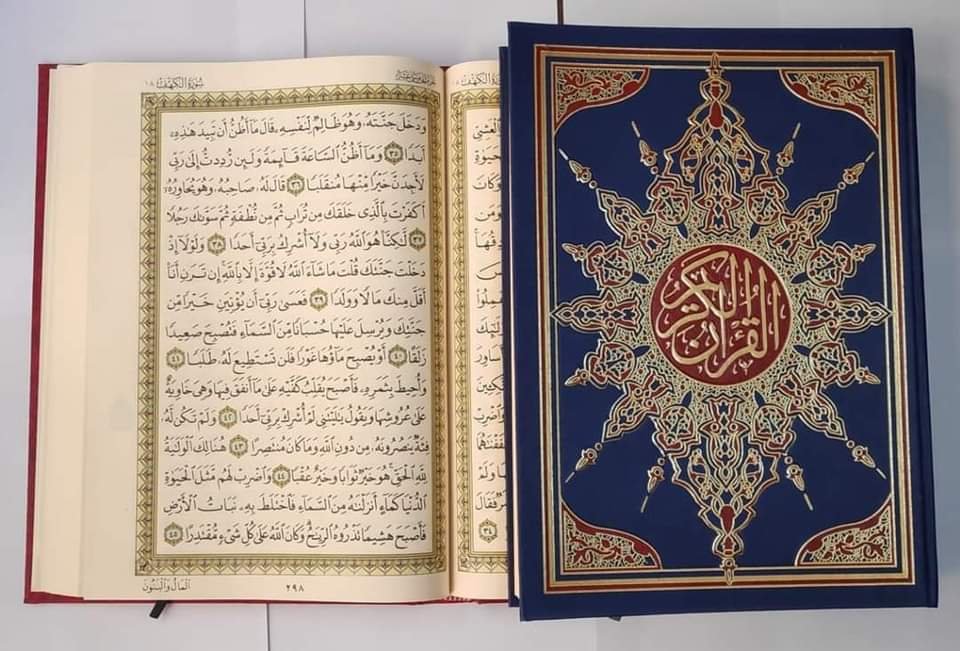 الجُزْءُ الخَامِسُ عَشَرَ سُورَةُ الكَهْفِ ١٨
وَدَخَلَ جَنَّتَهُۥ وَهُوَ ظَالِمٌ لِّنَفْسِهِۦ قَالَ مَآ أَظُنُّ أَن تَبِيدَ هَٰذِهِۦٓ
أَبَدًا ٣٥ وَمَآ أَظُنُّ ٱلسَّاعَةَ قَآئِمَةً وَلَئِن رُّدِدتُّ إِلَىٰ رَبِّى
لَأَجِدَنَّ خَيْرًا مِّنْهَا مُنقَلَبًا ٣٦ قَالَ لَهُۥ صَاحِبُهُۥ وَهُوَ يُحَاوِرُهُۥٓ
أَكَفَرْتَ بِٱلَّذِى خَلَقَكَ مِن تُرَابٍ ثُمَّ مِن نُّطْفَةٍ ثُمَّ سَوَّىٰكَ رَجُلًا
٣٧ لَّٰكِنَّا۠ هُوَ ٱللَّهُ رَبِّى وَلَآ أُشْرِكُ بِرَبِّىٓ أَحَدًا ٣٨ وَلَوْلَآ إِذْ
دَخَلْتَ جَنَّتَكَ قُلْتَ مَا شَآءَ ٱللَّهُ لَا قُوَّةَ إِلَّا بِٱللَّهِ إِن تَرَنِ أَنَا۠
أَقَلَّ مِنكَ مَالًا وَوَلَدًا ٣٩ فَعَسَىٰ رَبِّىٓ أَن يُؤْتِيَنِ خَيْرًا مِّن
جَنَّتِكَ وَيُرْسِلَ عَلَيْهَا حُسْبَانًا مِّنَ ٱلسَّمَآءِ فَتُصْبِحَ صَعِيدًا
زَلَقًا ٤٠ أَوْ يُصْبِحَ مَآؤُهَا غَوْرًا فَلَن تَسْتَطِيعَ لَهُۥ طَلَبًا ٤١
وَأُحِيطَ بِثَمَرِهِۦ فَأَصْبَحَ يُقَلِّبُ كَفَّيْهِ عَلَىٰ مَآ أَنفَقَ فِيهَا وَهِىَ خَاوِيَةٌ
عَلَىٰ عُرُوشِهَا وَيَقُولُ يَٰلَيْتَنِى لَمْ أُشْرِكْ بِرَبِّىٓ أَحَدًا ٤٢ وَلَمْ تَكُن لَّهُۥ
فِئَةٌ يَنصُرُونَهُۥ مِن دُونِ ٱللَّهِ وَمَا كَانَ مُنتَصِرًا ٤٣ هُنَالِكَ ٱلْوَلَٰيَةُ
لِلَّهِ ٱلْحَقِّ هُوَ خَيْرٌ ثَوَابًا وَخَيْرٌ عُقْبًا ٤٤ وَٱضْرِبْ لَهُم مَّثَلَ ٱلْحَيَوٰةِ
ٱلدُّنْيَا كَمَآءٍ أَنزَلْنَٰهُ مِنَ ٱلسَّمَآءِ فَٱخْتَلَطَ بِهِۦ نَبَاتُ ٱلْأَرْضِ
فَأَصْبَحَ هَشِيمًا تَذْرُوهُ ٱلرِّيَٰحُ وَكَانَ ٱللَّهُ عَلَىٰ كُلِّ شَىْءٍ مُّقْتَدِرًا ٤٥
٢٩٨ ٱلْمَالُ وَٱلْبَنُونَ
القُرْآنُ الكَرِيمُ